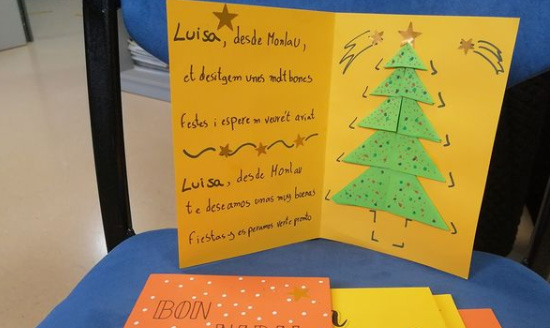 Luisa, desde Monlau,
et desitgem unes molt bones
festes i esperem veure't aviat
Luisa, desde Monlau
te deseamos unas muy buenas
fiestas y esperamos verte pronto
BON